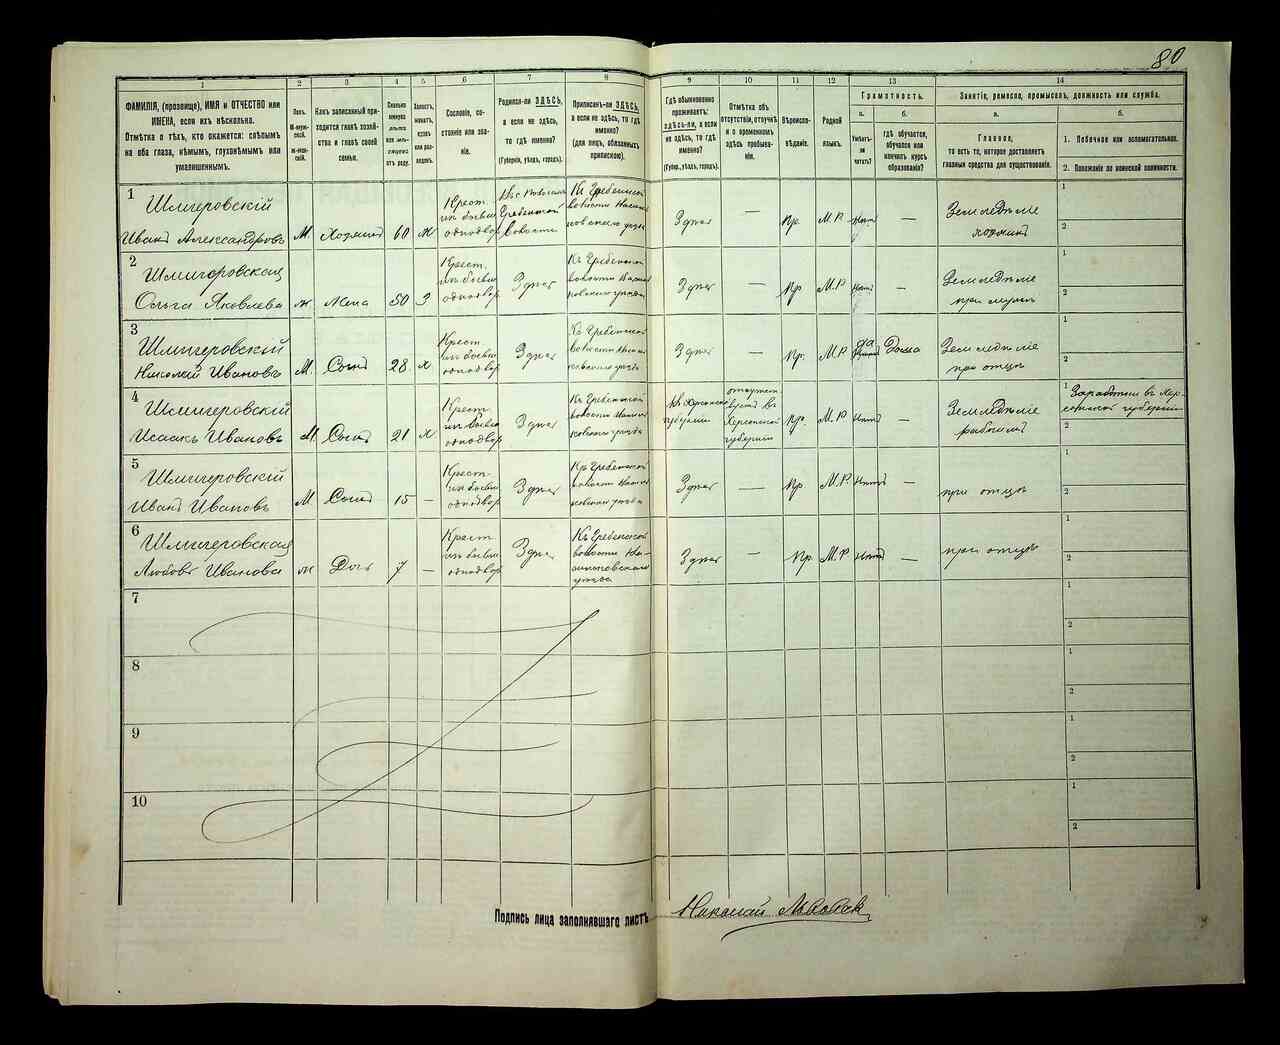 80
1
2
3
4
5
6
7
8
9
10
11
12
13
14
ФАМИЛІЯ, (прозвище), ИМЯ и ОТЧЕСТВО или
ИМЕНА, если ихъ нѣсколько.
Отмѣтка о тѣхъ, кто окажется: слѣпымъ
на оба глаза, нѣмымъ, глухонѣмымъ или
умалишеннымъ.
Полъ.
М-мужской.
Ж-женскій.
Какъ записанный приходится главѣ хозяйства и главѣ своей
семьи.
Сколько
минуло
лѣтъ
или мѣсяцевъ
отъ роду.
Холостъ,
женатъ,
вдовъ
или разведенъ.
Сословіе, состояніе или званіе.
Родился-ли ЗДѢСЬ,
а если не здѣсь,
то гдѣ именно?
(Губернія, уѣздъ, городъ).
Приписанъ-ли ЗДѢСЬ,
а если не здѣсь, то гдѣ
именно?
(для лицъ, обязанныхъ
припискою).
Гдѣ обыкновенно
проживаетъ:
здѣсь-ли, а если
не здѣсь, то гдѣ
именно?
(Губер., уѣздъ, городъ).
Отмѣтка объ
отсутствіи, отлучкѣ
и о временномъ
здѣсь пребываніи.
Вѣроисповѣданіе.
Родной
языкъ.
Грамотность.
а.
Умѣетъ-ли
читать?
б.
гдѣ обучается,
обучался или
кончилъ курсъ
образованія?
Занятіе, ремесло, промыселъ, должность или служба.
а.
Главное,
то есть то, которое доставляетъ
главныя средства для существованія.
б.
1. Побочное или вспомогательное.
2. Положеніе по воинской повинности.
1
Шлигеровскій
Иванъ Александровъ
М. Хозяинъ 60 ж
Крест.
изъ бывш
однодвор
Гребенской
волости
Къ Гребенской
волости
уѣзда
Здѣсь — Пр. М.Р. Нѣтъ —
Земледѣліе
хозяинъ
1
2
2
Шлигеровская
Ольга Яковлева
ж Жена 50 З
Крест.
изъ бывш
однодвор
Здѣсь
Къ Гребенской
волости
уѣзда
Здѣсь — Пр М.Р Нѣтъ —
Земледѣліе
при мужѣ
1
2
3
Шлигеровскій
Николай Ивановъ
М. Сынъ 28 х
Крест
изъ бывш
однодвор
Здѣсь
Къ Гребенской
волости
уѣзда
Здѣсь — Пр. М.Р да Дома
Земледѣліе
при отцѣ
1
2
4
Шлигеровскій
Исаакъ Ивановъ
М Сынъ 21 х
Крест
изъ бывш
однодвор
Здѣсь
Къ Гребенской
волости
уѣзда
Въ Херсонской
губерніи
въ
Херсонской
губерніи
Пр. М.Р Нѣтъ
Земледѣліе
1 Заработки въ Херсонской губерніи
2
5
Шлигеровскій
Иванъ Ивановъ
М Сынъ 15 —
Крест
изъ бывш
однодвор
Здѣсь
Къ Гребенской
волости
уѣзда
Здѣсь — Пр М.Р. Нѣтъ —
при отцѣ
1
2
6
Шлигеровская
Любовь Иванова
ж Дочь 7 —
Крест
изъ бывш
однодвор
Здѣсь
Къ Гребенской
волости
уѣзда
Здѣсь — Пр М.Р Нѣтъ —
при отцѣ
1
2
7
1
2
8
1
2
9
1
2
10
1
2
Подпись лица заполнявшаго листъ
Николай